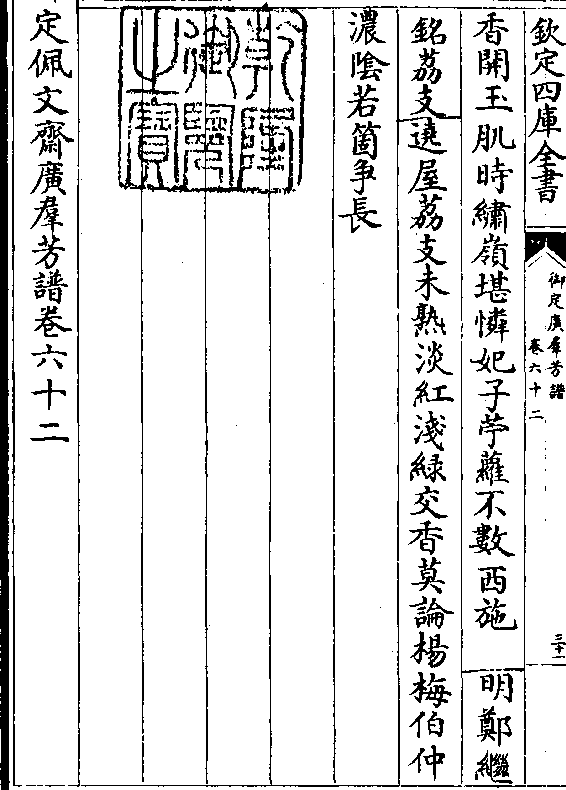 欽定四庫全書
御定廣羣芳譜
卷六十二
三十一
香開玉肌時繡嶺堪憐妃子苧蘿不數西施 明鄭繼
銘荔支遶屋荔支未熟淡紅淺綠交香莫論楊梅伯仲
濃陰若箇争長
乾隆御覽之寶
定佩文齋廣羣芳譜卷六十二